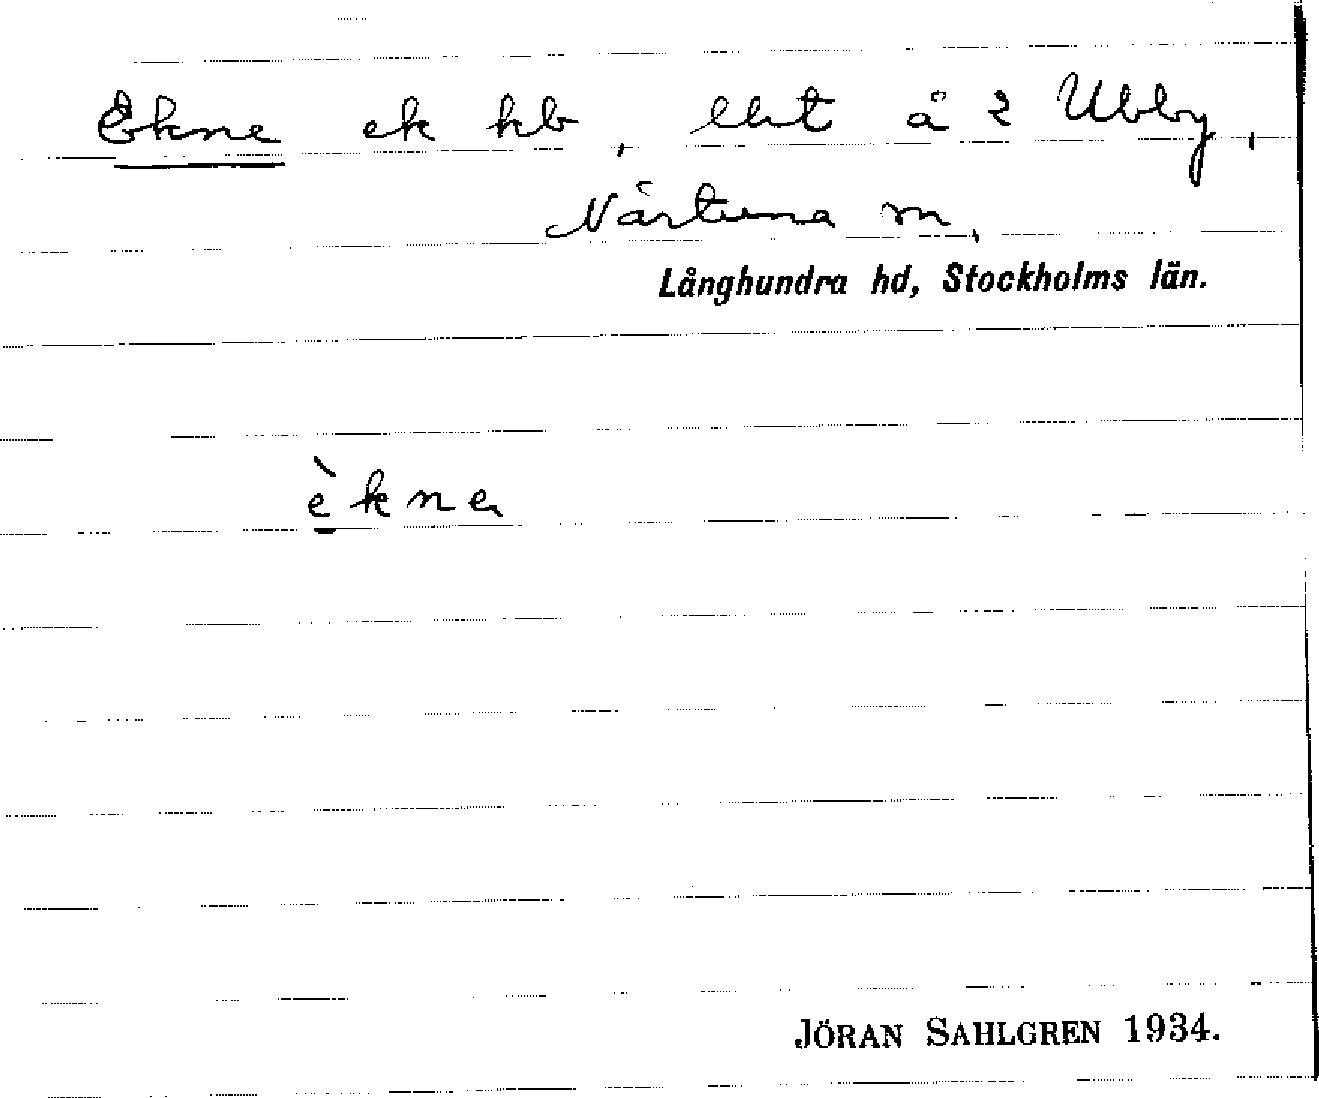 Ekne ek kb, lht å 2 Ubby,
Närtuna sn,
Långhundra hd, Stockholms län.
èkne
JÖRAN SAHLGREN 1934.